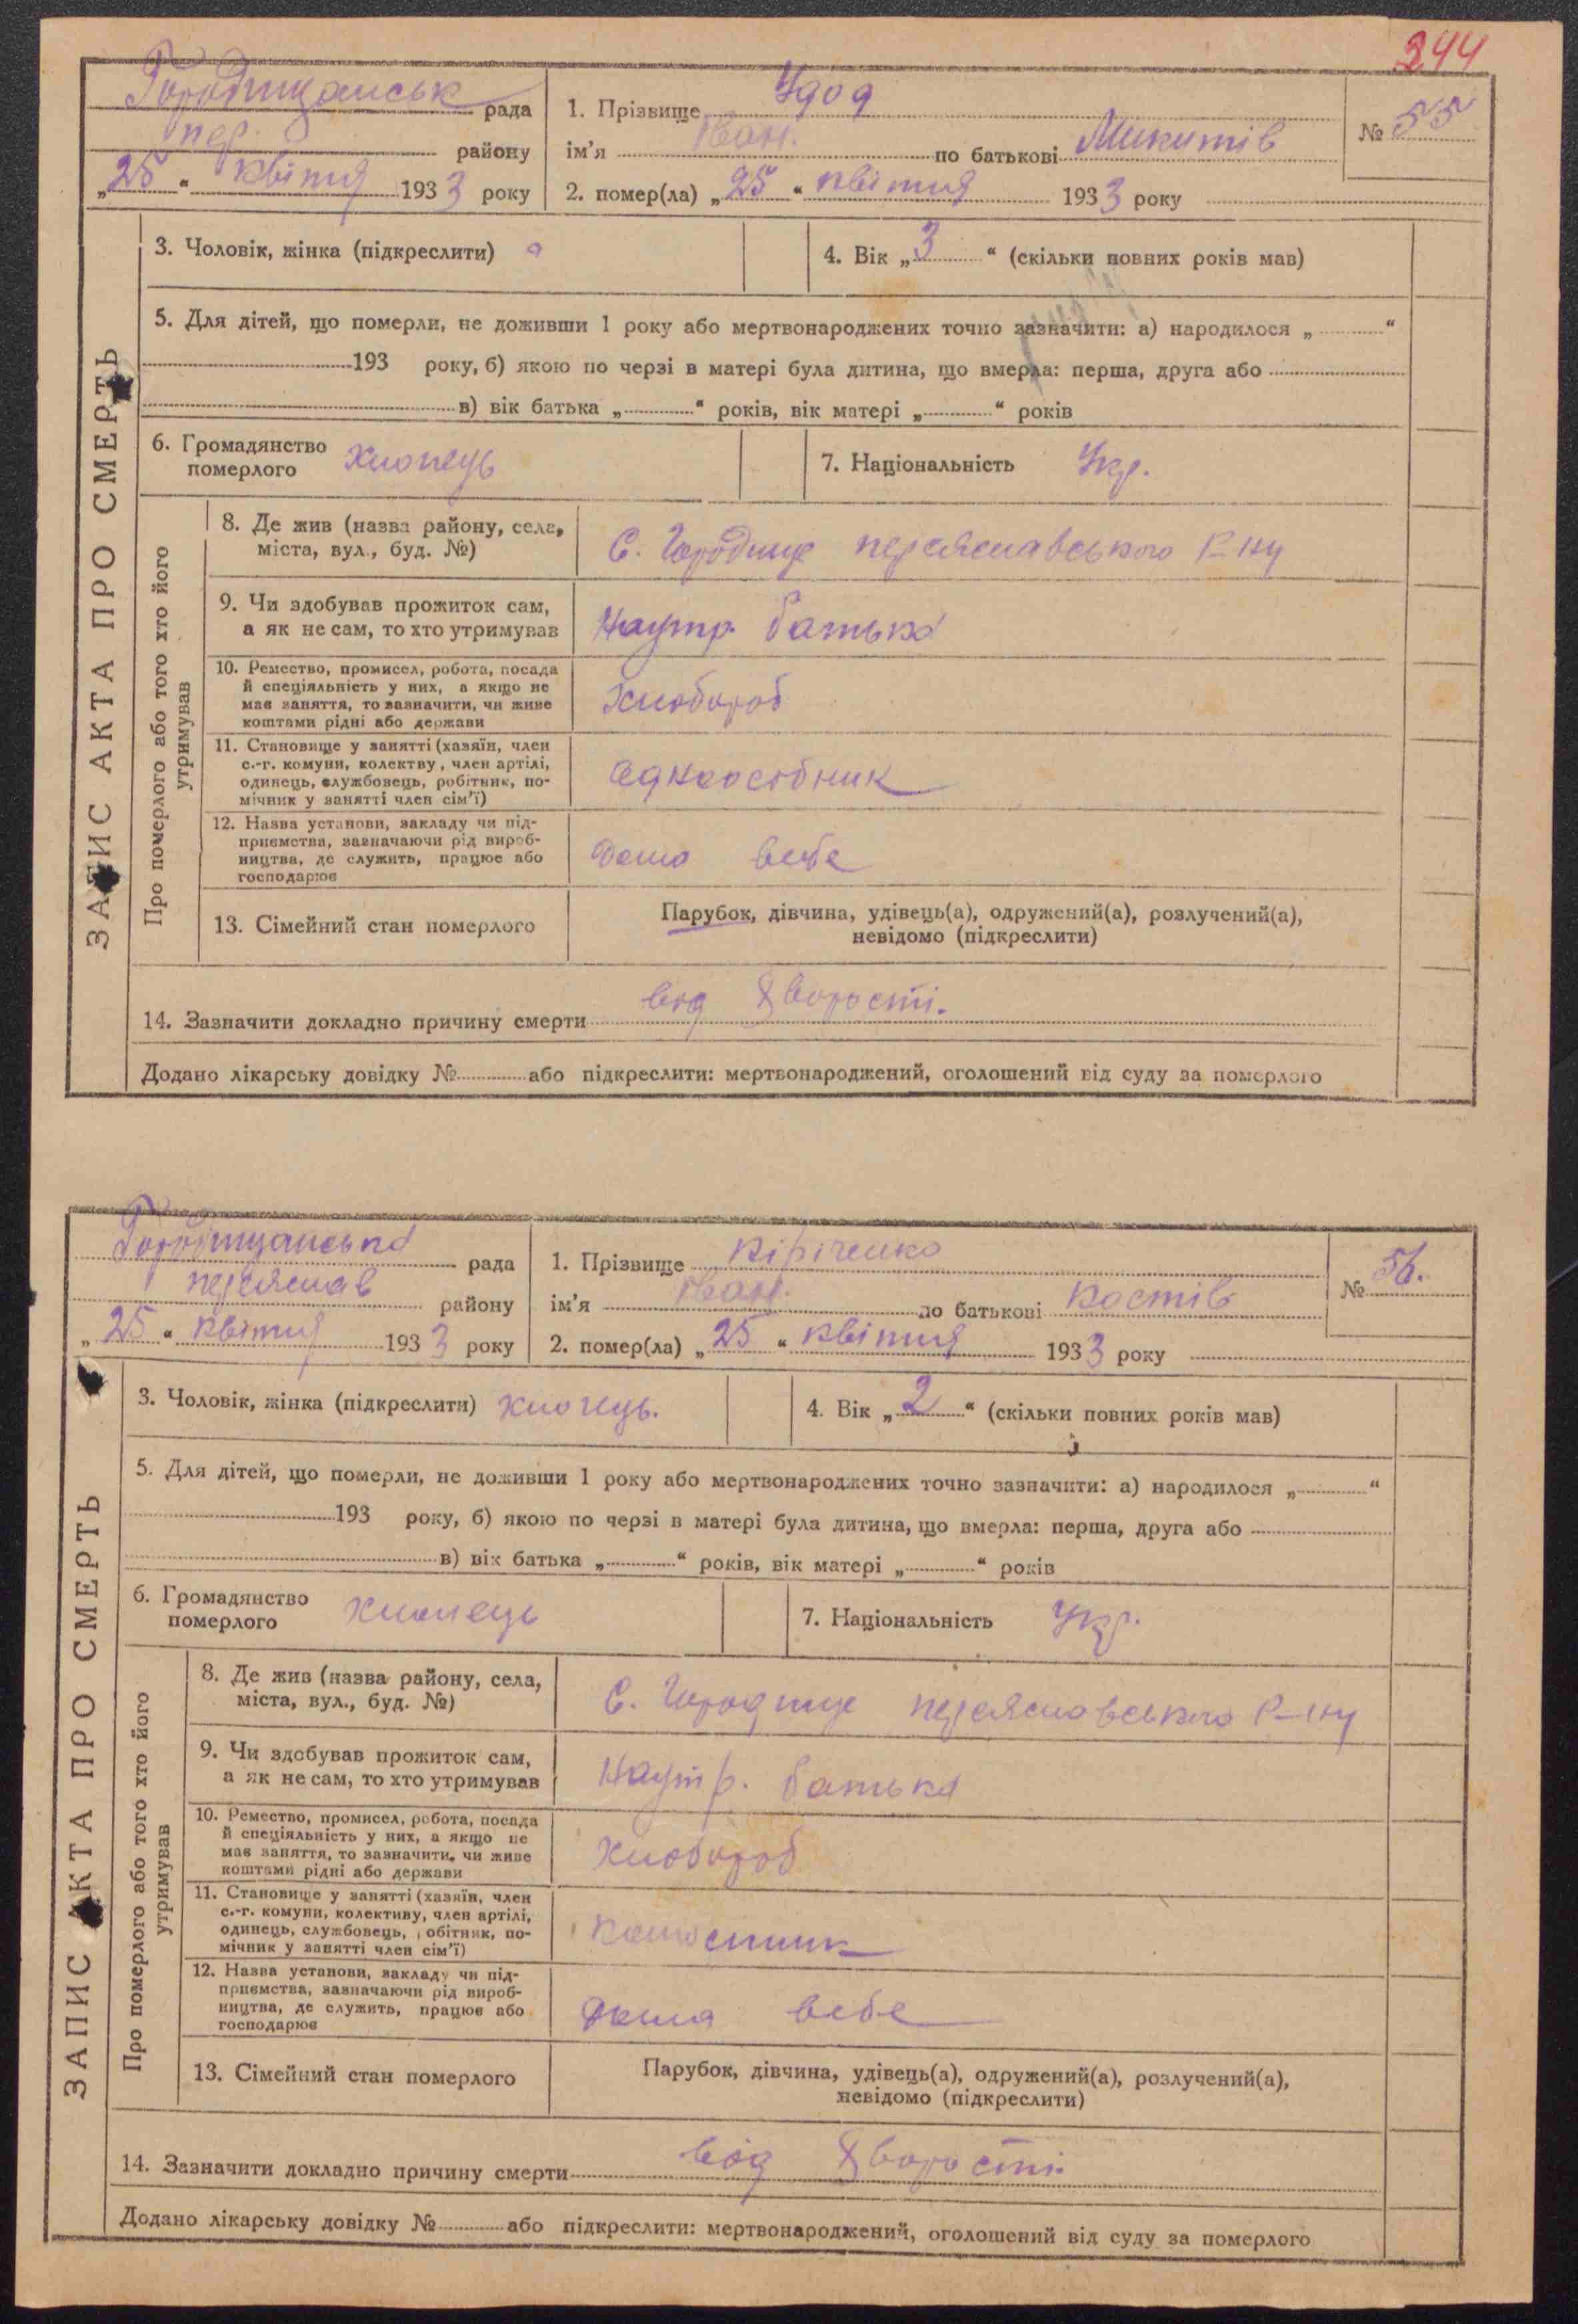 344
Городищанськ рада
пер. району
„25“ квітня 1933 року
1. Прізвище Удод
ім'я Іван. по батькові Микитів
2. помер(ла) „25“ квітня 1933 року
№ 55
ЗАПИС АКТА ПРО СМЕРТЬ
3. Чоловік, жінка (підкреслити)
4. Вік „3“ (скільки повних років мав)
5. Для дітей, що померли, не доживши 1 року або мертвонароджених точно зазначити: а) народилося „ “
193 року, б) якою по черзі в матері була дитина, що вмерла: перша, друга або
в) вік батька „ “ років, вік матері „ “ років
6. Громадянство
померлого хлопець
7. Національність Укр.
Про померлого або того хто його
утримував
8. Де жив (назва району, села,
міста, вул., буд. №)
С. Городище переяславського р-ну
9. Чи здобував прожиток сам,
а як не сам, то хто утримував
Наутр. батька
10. Ремество, промисел, робота, посада
й спеціяльність у них, а якщо не
мав заняття, то зазначити, чи живе
коштами рідні або держави
Хлібороб
11. Становище у занятті (хазяїн, член
с.-г. комуни, колектву, член артілі,
одинець, службовець, робітник, по-
мічник у занятті член сім'ї)
Одноосібник
12. Назва установи, закладу чи під-
приємства, зазначаючи рід вироб-
ництва, де служить, працює або
господарює
Дома себе
13. Сімейний стан померлого
Парубок, дівчина, удівець(а), одружений(а), розлучений(а),
невідомо (підкреслити)
14. Зазначити докладно причину смерти від хворости.
Додано лікарську довідку № або підкреслити: мертвонароджений, оголошений від суду за померлого
Городищанська рада
переяслав району
„25“ квітня 1933 року
1. Прізвище Кіріченко
ім'я Іван. по батькові Костів
2. помер(ла) „25“ квітня 1933 року
№ 56.
ЗАПИС АКТА ПРО СМЕРТЬ
3. Чоловік, жінка (підкреслити) хлопець.
4. Вік „2“ (скільки повних років мав)
5. Для дітей, що померли, не доживши 1 року або мертвонароджених точно зазначити: а) народилося „ “
193 року, б) якою по черзі в матері була дитина, що вмерла: перша, друга або
в) вік батька „ “ років, вік матері „ “ років
6. Громадянство
померлого хлопець
7. Національність Укр.
Про померлого або того хто його
утримував
8. Де жив (назва району, села,
міста, вул., буд. №)
С. Городище переяславського р-ну
9. Чи здобував прожиток сам,
а як не сам, то хто утримував
Наутр. батька
10. Ремество, промисел, робота, посада
й спеціяльність у них, а якщо не
мав заняття, то зазначити, чи живе
коштами рідні або держави
Хлібороб
11. Становище у занятті (хазяїн, член
с.-г. комуни, колективу, член артілі,
одинець, службовець, обітник, по-
мічник у занятті член сім'ї)
12. Назва установи, закладу чи під-
приємства, зазначаючи рід вироб-
ництва, де служить, працює або
господарює
Дома себе
13. Сімейний стан померлого
Парубок, дівчина, удівець(а), одружений(а), розлучений(а),
невідомо (підкреслити)
14. Зазначити докладно причину смерти від хворости.
Додано лікарську довідку № або підкреслити: мертвонароджений, оголошений від суду за померлого